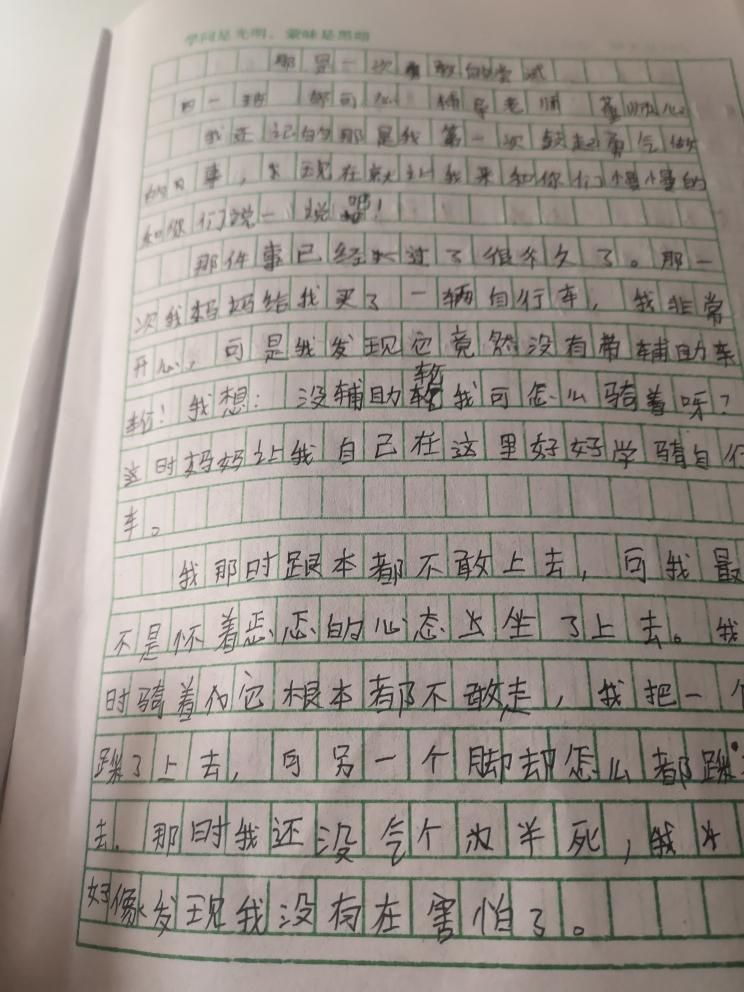 学问是光明，蒙昧是黑暗
那是一次勇敢的尝试
四一班 郭可心 辅导老师
我还记的那是我第一次鼓起勇气做
的事，现在就让我来和你们慢慢的
和你们说一说吧！
那件事已经过了很多久了。那一
次我妈妈给我买了一辆自行车，我非常
开心，可是我发现它竟然没有带辅助车
轮！我想：没辅助轮我可怎么骑着呀？
这时妈妈让我自己在这里好好学骑自行
车。
我那时跟本都不敢上去，可我最
不是怀着忐忑的心态坐了上去。我
时骑着它根本都不敢走，我把一个
踩了上去，可另一个脚却怎么都踩
去，那时我还没气个为半死，我
好像发现我没有在害怕了。